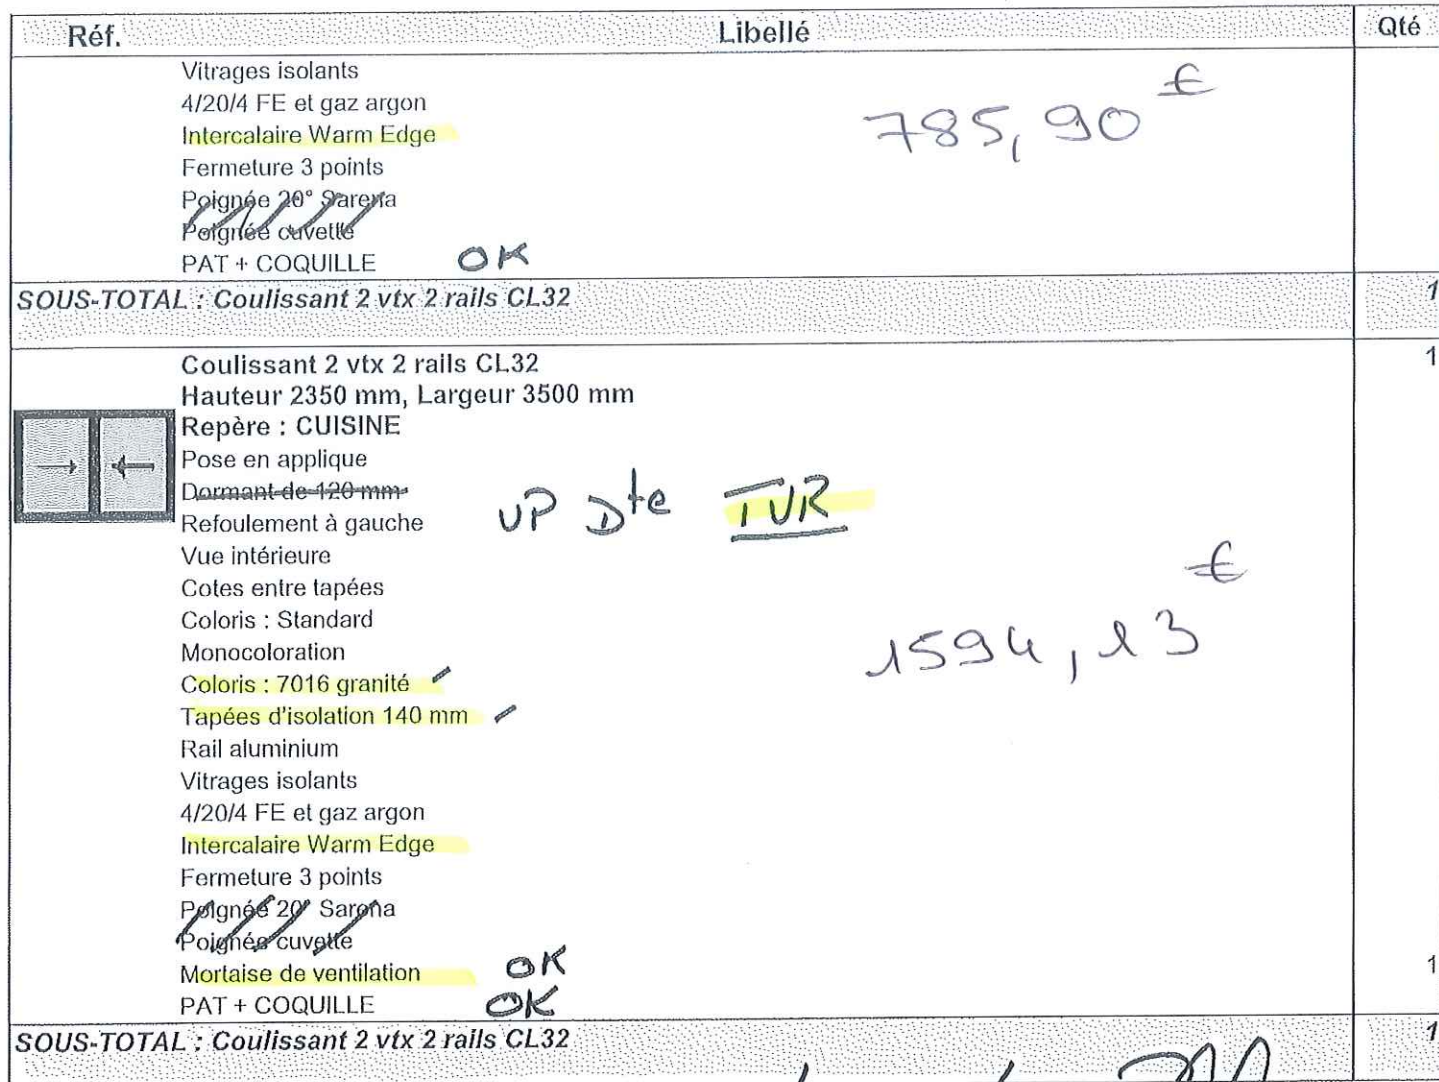 Réf. Libellé Qté
Vitrages isolants
4/20/4 FE et gaz argon
785,90 €
Intercalaire Warm Edge
Fermeture 3 points
Poignée 20° Sarena
Poignée cuvette
PAT + COQUILLE OK
SOUS-TOTAL : Coulissant 2 vtx 2 rails CL32 1
Coulissant 2 vtx 2 rails CL32 1
Hauteur 2350 mm, Largeur 3500 mm
Repère : CUISINE
Pose en applique
Dormant de 120 mm
VP Dte TVR
Refoulement à gauche
Vue intérieure
Cotes entre tapées
Coloris : Standard
Monocoloration
1594,13 €
Coloris : 7016 granité
Tapées d'isolation 140 mm
Rail aluminium
Vitrages isolants
4/20/4 FE et gaz argon
Intercalaire Warm Edge
Fermeture 3 points
Poignée 20° Sarena
Poignée cuvette
Mortaise de ventilation OK 1
PAT + COQUILLE OK
SOUS-TOTAL : Coulissant 2 vtx 2 rails CL32 1